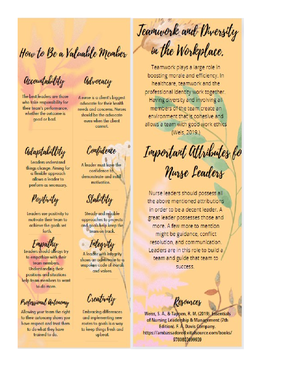 How to Be a Valuable Member
Accountability
The best leaders are those
who take responsibility for
their team's performance,
whether the outcome is
good or bad.
Advocacy
A nurse is a client's biggest
advocate for their health
needs and concerns. Nurses
should be the advocate
even when the client
cannot.
Adaptability
Leaders understand
things change. Aiming for
a flexible approach
allows a leader to
perform as necessary.
Confidence
A leader must have the
confidence to
demonstrate and instill
motivation.
Positivity
Leaders use positivity to
motivate their team to
achieve the goals set
forth.
Stability
Steady and reliable
approaches to projects
and probably keep the
team on track.
Empathy
Leaders should always try
to empathize with their
team members.
Understanding their
positions and situations
help team members to want
to do more.
Integrity
A leader with integrity
shows an adherence to a
code of morals
and values.
Professional Autonomy
Allowing your team the right
to their autonomy shows you
have respect and trust them
to do what they have
trained to do.
Creativity
Embracing differences
and implementing new
routes to goals is a way
to keep things fresh and
upbeat.
Teamwork and Diversity
in the Workplace.
Teamwork plays a large role in
boosting morale and efficiency. In
healthcare, teamwork and the
professional identity work together.
Having diversity and involving all
members of the team create an
environment that is cohesive and
allows a team with good work ethics
(Weis, 2019.)
Important Attributes fo
Nurse Leaders
Nurse leaders should possess all
the above mentioned attributes
in order to be a decent leader. A
great leader possesses those and
more. A few more to mention
might be guidance, conflict
resolution, and communication.
Leaders are in this role to build a
team and guide that team to
success.
Resources
Weiss, S. A., & Tappen, R. M. (2019). Essentials
of Nursing Leadership & Management (7th
Edition). F. A. Davis Company.